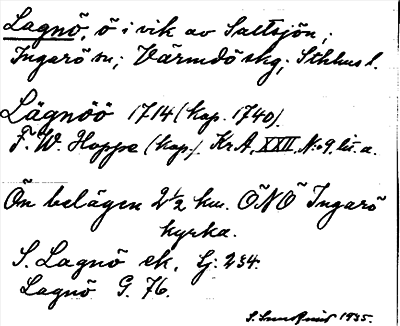 Lagnö, ö i vik av Saltsjön,
Ingarö sn; Värmdö skg; Sthlms l.
Lägnöö 1714 (kop. 1740).
F. W. Hoppe (kop.). Kr.A. XXII, N:o 9, lit. a.
Ön belägen 2½ km. ÖNÖ Ingarö
kyrka.
S. Lagnö ek. Gj: 234.
Lagnö G. 76.
1935.